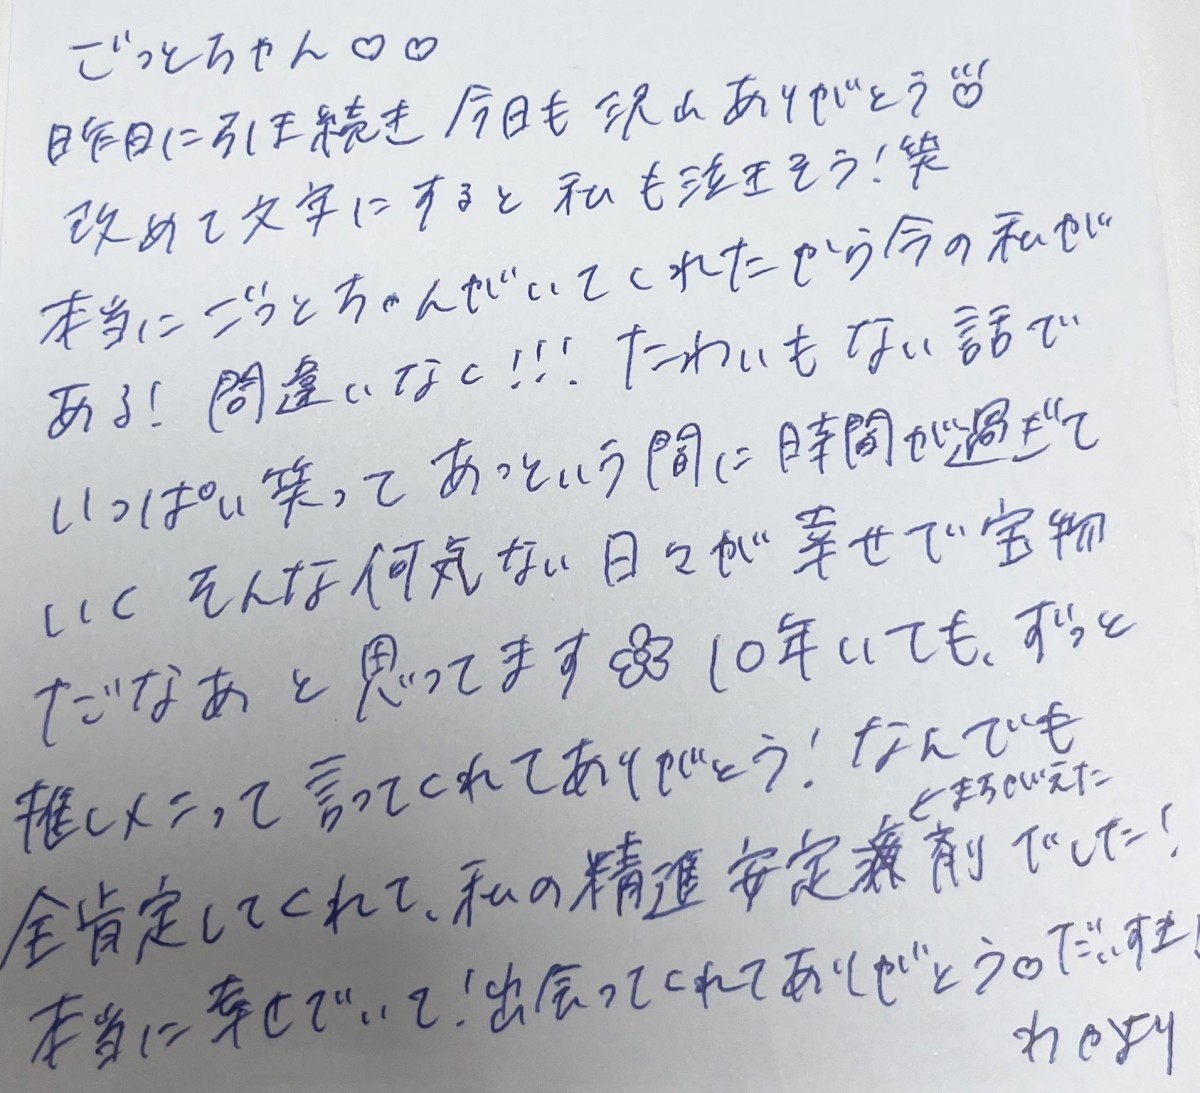 ごっとちゃん♡♡
昨日に引き続き 今日も 沢山 ありがとう
改めて文字にすると 私も泣きそう!笑
本当にごっとちゃんがいてくれたから今の私が
ある! 間違いなく!!! たわいもない話で
いっぱい笑って あっという間に時間が過ぎて
いく そんな何気ない日々が幸せで宝物
だなあと思ってます 10年いても、ずっと
推しメンって言ってくれてありがとう! なんでも
とまちがえた
全肯定してくれて、私の精進安定剤でした!
本当に幸せでいて!出会ってくれてありがとう♡だいすき!
わかより